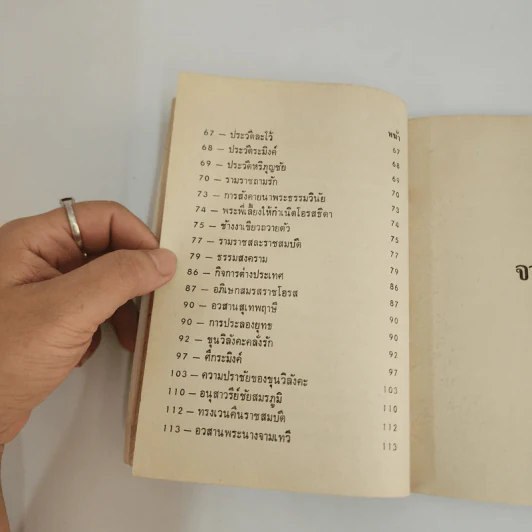 หน้า
67 — ประวัติละโว้ 67
68 — ประวัติระมิงค์ 68
69 — ประวัติหริภุญชัย 69
70 — รามราชถามรัก 70
73 — การสังคายนาพระธรรมวินัย 73
74 — พระพี่เลี้ยงให้กำเนิดโอรสธิดา 74
75 — ช้างงาเขียวถวายตัว 75
77 — รามราชสละราชสมบัติ 77
79 — ธรรมสงคราม 79
86 — กิจการต่างประเทศ 86
87 — อภิเษกสมรสราชโอรส 87
90 — อวสานสุเทพฤาษี 90
90 — การประลองยุทธ 90
92 — ขุนวิลังคะคลั่งรัก 92
97 — ศึกระมิงค์ 97
103 — ความปราชัยของขุนวิลังคะ 103
110 — อนุสาวรีย์ชัยสมรภูมิ 110
112 — ทรงเวนคืนราชสมบัติ 112
113 — อวสานพระนางจามเทวี 113